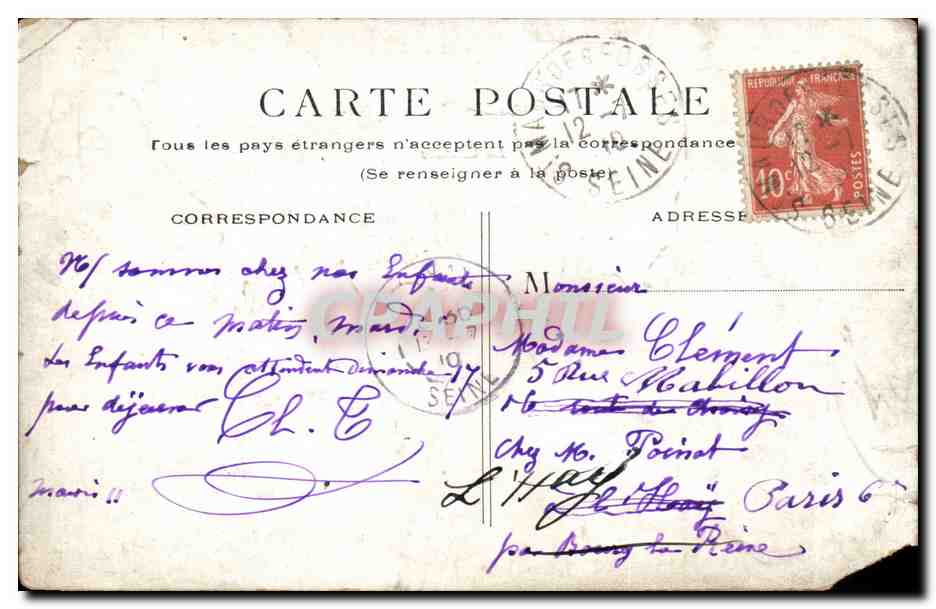 CARTE POSTALE
Tous les pays étrangers n'acceptent pas la correspondance
(Se renseigner à la poste)
CORRESPONDANCE
ADRESSE
REPUBLIQUE FRANÇAISE
10 c
POSTES
SEINE
SEINE
SEINE
CPAPHIL
N/ sommes chez nos Enfants
depuis ce matin, mardi
Les Enfants vous attendent Dimanche 17
pour déjeuner
Ch. T
Monsieur
Madame Clément
5 Rue Mabillon
Chez M. Poinat
L'Hay
Paris 6e
par Bourg la Reine